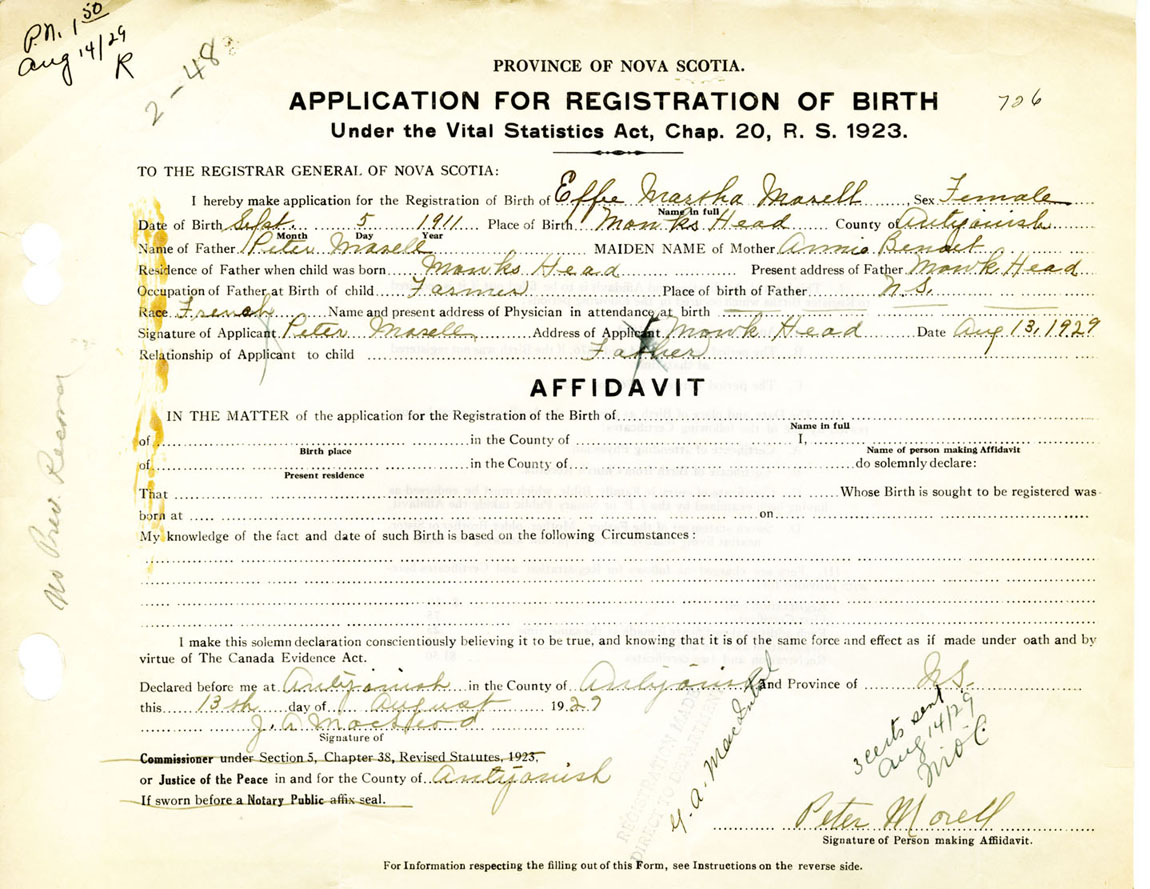 P.N. 1.50
Aug 14/29
R
2-48
PROVINCE OF NOVA SCOTIA.
APPLICATION FOR REGISTRATION OF BIRTH
726
Under the Vital Statistics Act, Chap. 20, R. S. 1923.
TO THE REGISTRAR GENERAL OF NOVA SCOTIA:
I hereby make application for the Registration of Birth of Effie Martha Morell Sex Female
Name in full
Date of Birth Sept. 5 1911 Place of Birth Monks Head County of Antigonish
Month Day Year
Name of Father Peter Morell MAIDEN NAME of Mother Annie Benoit
Residence of Father when child was born Monks Head Present address of Father Monk Head
Occupation of Father at Birth of child Farmer Place of birth of Father N.S.
Race French Name and present address of Physician in attendance at birth
Signature of Applicant Peter Morell Address of Applicant Monk Head Date Aug 13, 1929
Relationship of Applicant to child Father
AFFIDAVIT
IN THE MATTER of the application for the Registration of the Birth of
Name in full
of in the County of I,
Birth place Name of person making Affidavit
of in the County of do solemnly declare:
Present residence
That Whose Birth is sought to be registered was
born at on
My knowledge of the fact and date of such Birth is based on the following Circumstances:
No Prev. Record
I make this solemn declaration conscientiously believing it to be true, and knowing that it is of the same force and effect as if made under oath and by
virtue of The Canada Evidence Act.
Declared before me at Antigonish in the County of Antigonish and Province of N.S.
this 13th day of August 1929
J. A. MacLeod
Signature of
Commissioner under Section 5, Chapter 38, Revised Statutes, 1923,
or Justice of the Peace in and for the County of Antigonish
If sworn before a Notary Public affix seal.
REGISTRATION MADE
DIRECT TO DEPARTMENT
3 certs sent
Aug 14/29
Peter Morell
Signature of Person making Affidavit.
For Information respecting the filling out of this Form, see Instructions on the reverse side.